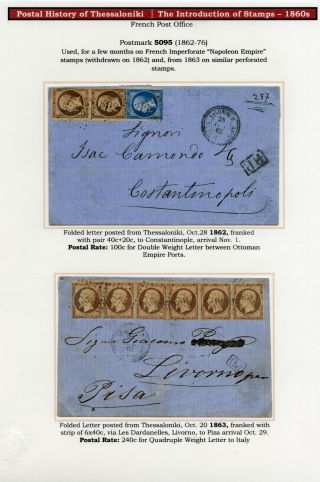 Postal History of Thessaloniki | The Introduction of Stamps – 1860s
French Post Office
Postmark 5095 (1862-76)
Used, for a few months on French Imperforate "Napoleon Empire"
stamps (withdrawn on 1862) and, from 1863 on similar perforated
stamps.
287
Signor
Isac Camondo
Costantinopoli
Folded letter posted from Thessaloniki, Oct.28 1862, franked
with pair 40c+20c, to Constantinople, arrival Nov. 1.
Postal Rate: 100c for Double Weight Letter between Ottoman
Empire Ports.
Livorno
Pisa
Folded Letter posted from Thessaloniki, Oct. 20 1863, franked with
strip of 6x40c, via Les Dardanelles, Livorno, to Piza arrival Oct. 29.
Postal Rate: 240c for Quadruple Weight Letter to Italy